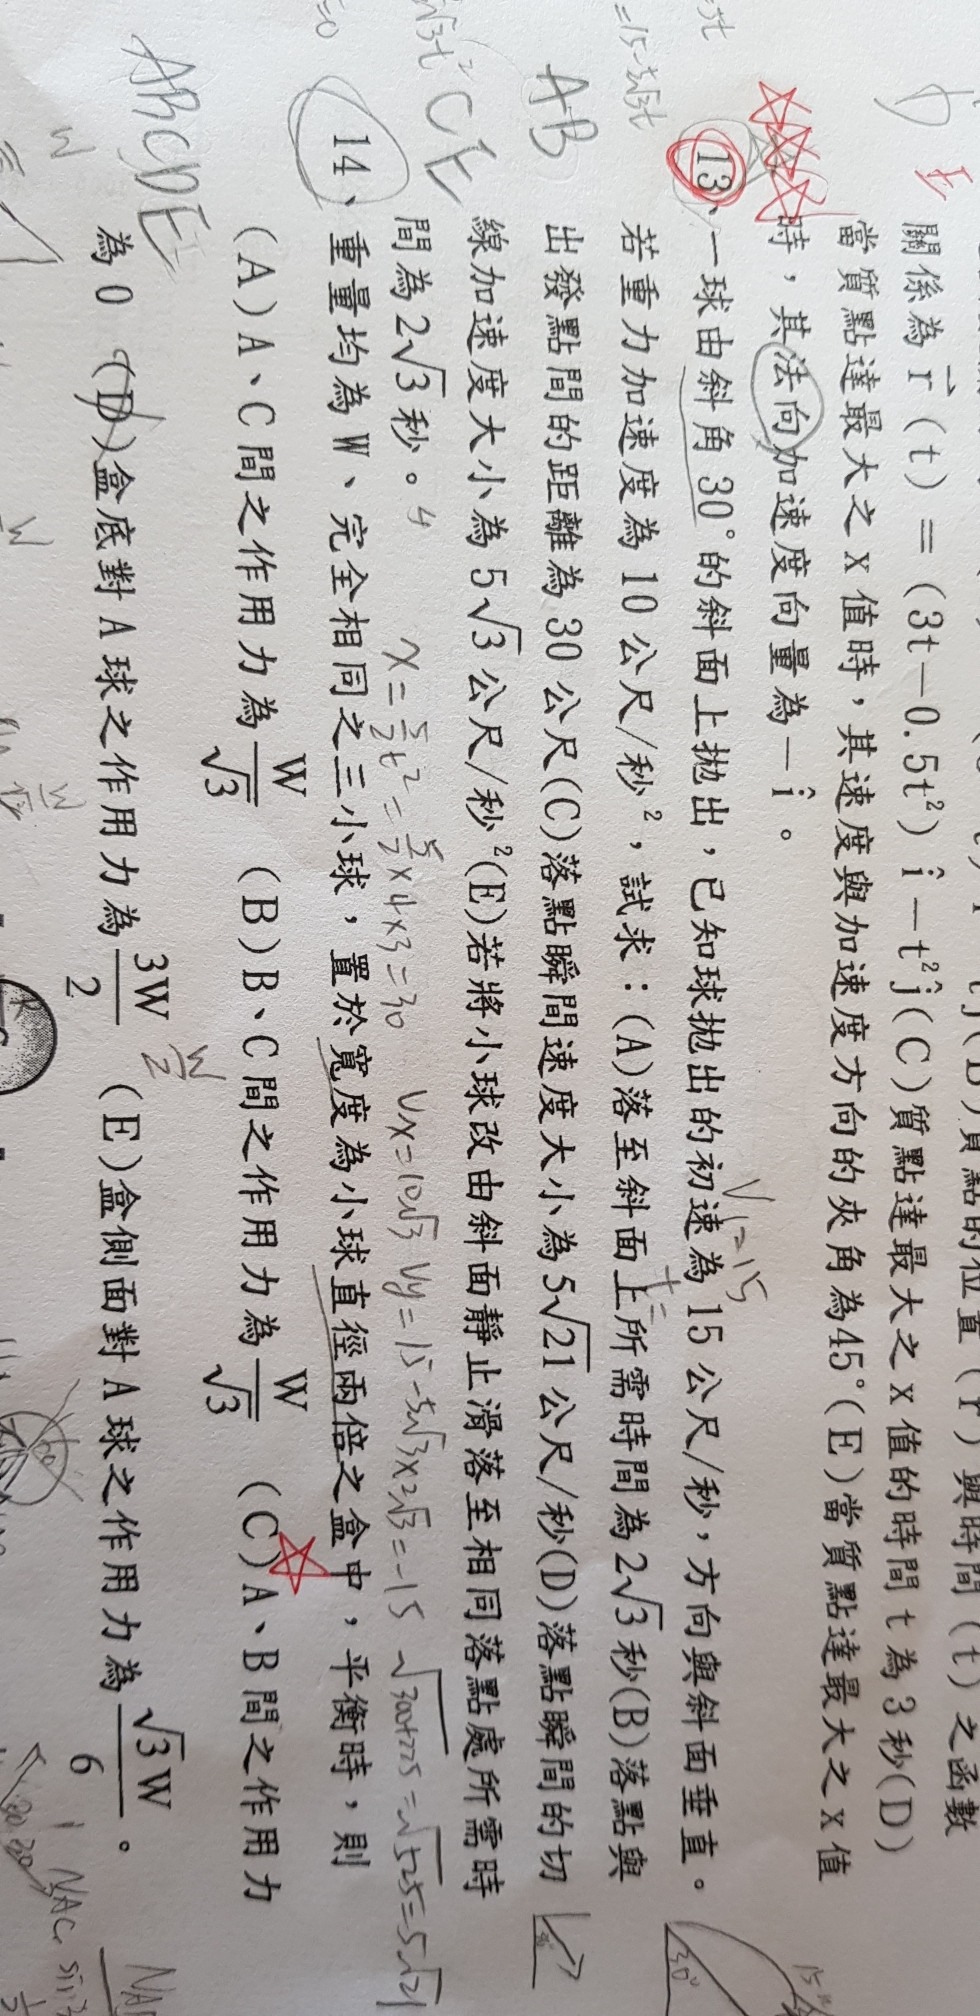 關係為 r⃗ (t) = (3t－0.5t²) î －t² ĵ (C)質點達最大之 x 值的時間 t 為 3 秒(D)
當質點達最大之 x 值時，其速度與加速度方向的夾角為45°(E)當質點達最大之 x 值
時，其法向加速度向量為－î。
13、一球由斜角 30°的斜面上拋出，已知球拋出的初速為 15 公尺/秒，方向與斜面垂直。
若重力加速度為 10 公尺/秒²，試求：(A)落至斜面上所需時間為 2√3 秒(B)落點與
出發點間的距離為 30 公尺(C)落點瞬間速度大小為 5√21 公尺/秒(D)落點瞬間的切
線加速度大小為 5√3 公尺/秒²(E)若將小球改由斜面靜止滑落至相同落點處所需時
間為 2√3 秒。
14、重量均為 W、完全相同之三小球，置於寬度為小球直徑兩倍之盒中，平衡時，則
(A)A、C 間之作用力為 W/√3 (B)B、C 間之作用力為 W/√3 (C)A、B 間之作用力
為 0 (D)盒底對 A 球之作用力為 3W/2 (E)盒側面對 A 球之作用力為 √3W/6。
E
AB
CE
ABCDE
V₁=15
x=5/2t²=5/2×4×3=30 Vx=10√3 Vy=15-5√3×2√3=-15 √300+225=√525=5√21
W/2
30°